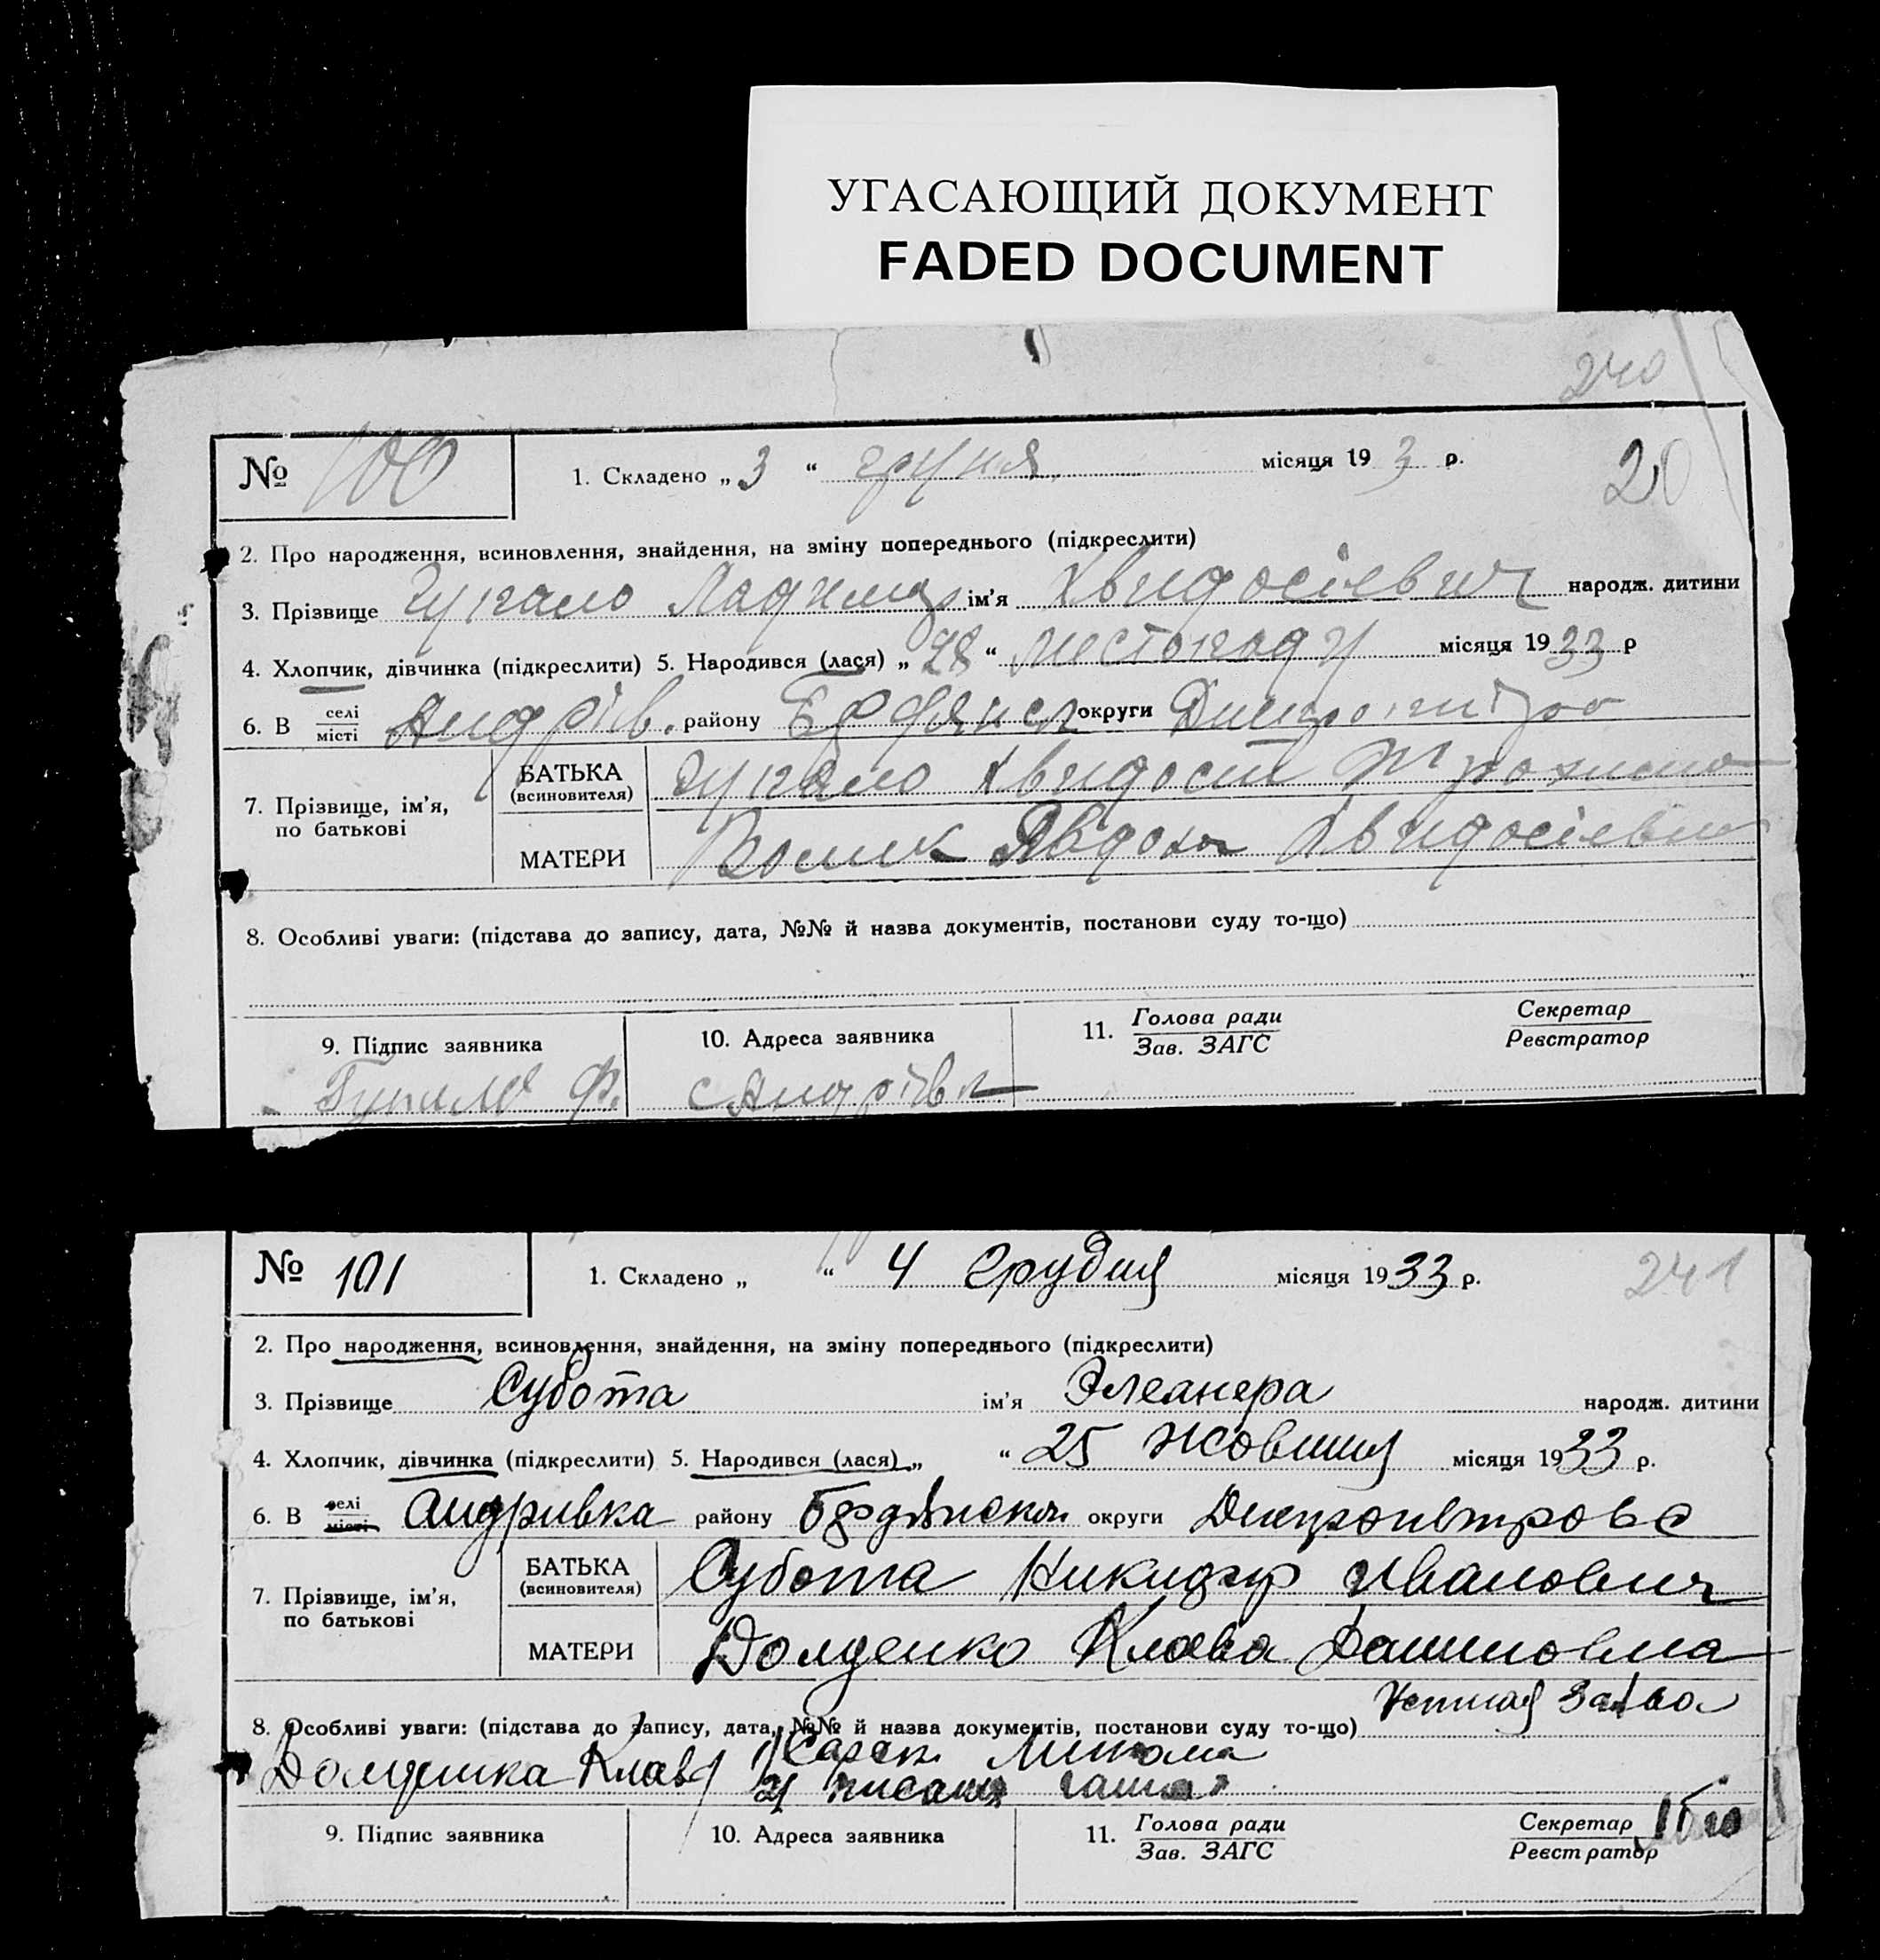 УГАСАЮЩИЙ ДОКУМЕНТ
FADED DOCUMENT
240
№ 100
1. Складено „ 3 “ грудня місяця 193 3 р.
20
2. Про народження, всиновлення, знайдення, на зміну попереднього (підкреслити)
3. Прізвище ім'я Хвидосієвич народж. дитини
4. Хлопчик, дівчинка (підкреслити) 5. Народився (лася) „ 28 “ листопаду місяця 19 33 р
6. В селі місті Андрів. району Бердянськ округи Днепропетро
7. Прізвище, ім'я, по батькові
БАТЬКА (всиновителя) Хвидосій
МАТЕРИ Явдоха Хвидосіевна
8. Особливі уваги: (підстава до запису, дата, №№ й назва документів, постанови суду то-що)
9. Підпис заявника
10. Адреса заявника
11. Голова ради Зав. ЗАГС
Секретар Реєстратор
Ф.
с Андрівка
№ 101
1. Складено „ “ 4 Грудня місяця 19 33 р.
241
2. Про народження, всиновлення, знайдення, на зміну попереднього (підкреслити)
3. Прізвище Субота ім'я Элеанера народж. дитини
4. Хлопчик, дівчинка (підкреслити) 5. Народився (лася) „ “ 25 Жовтня місяця 19 33 р.
6. В селі місті Андривка району Бердянськи округи Днепропетровс
7. Прізвище, ім'я, по батькові
БАТЬКА (всиновителя) Субота Никифор Иванович
МАТЕРИ Долденко Клава
Устная
8. Особливі уваги: (підстава до запису, дата, №№ й назва документів, постанови суду то-що)
9. Підпис заявника
10. Адреса заявника
11. Голова ради Зав. ЗАГС
Секретар Реєстратор